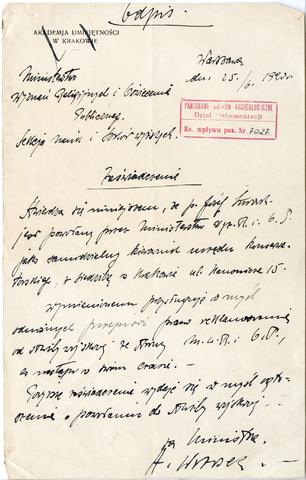 Odpis.
AKADEMJA UMIEJĘTNOŚCI
W KRAKOWIE
Warszawa
Ministerstwo
dn. 25./6. 192
Wyznań Religijnych i Oświecenia
Publicznego.
PAŃSTWOWE MUZEUM ARCHEOLOGICZNE
Dział Dokumentacji
Ks. wpływu poz. Nr 7027.
Sekcja Nauki i Szkół wyższych.
Zaświadczenie
Stwierdza się niniejszem, że p. Józef Żurowski
jest powołany przez Ministerstwo W.R. i O.P.
jako samodzielny kierownik urzędu Konserwa-
torskiego, z siedzibą w Krakowie ul. Kanonicza 15.
Wymienionemu przysługuje w myśl
odnośnych przepisów prawo reklamowania
od służby wojskowej ze strony M.W.R. i O.P.,
co nastąpi w swoim czasie.
Powyższe zaświadczenie wydaje się w myśl
o powołaniu do służby wojskowej.
za Ministra